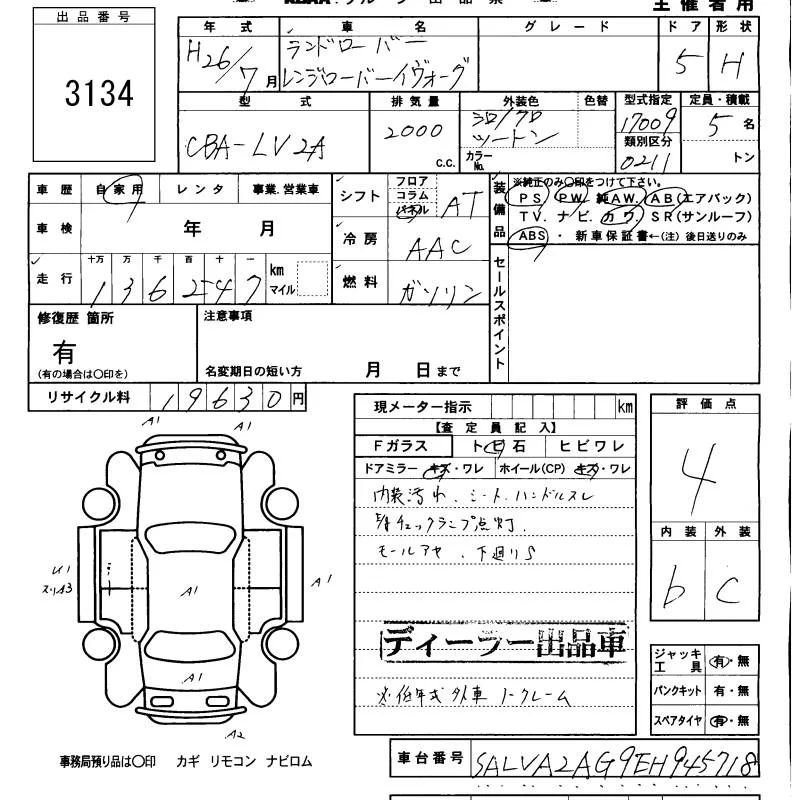 主催者用
出品番号
3134
年式 車名 グレード ドア 形状
H26/7月 ランドローバー レンジローバーイヴォーグ 5 H
型式 排気量 外装色 色替 型式指定 定員・積載
CBA-LV2A 2000 c.c. シロ/クロ ツートン 17009 5名
カラーNo. 類別区分 0211 トン
車歴 自家用 レンタ 事業.営業車
シフト フロア コラム パネル AT
装備品 ※純正のみ〇印をつけて下さい。
PS PW 純AW. AB(エアバック)
TV. ナビ. カワ. SR(サンルーフ)
ABS ・ 新車保証書←(注) 後日送りのみ
車検 年 月
冷房 AAC
走行 十万 万 千 百 十 一
136247 km マイル
燃料 ガソリン
セールスポイント
修復歴 箇所
有
(有の場合は〇印を)
注意事項
名変期日の短い方 月 日まで
リサイクル料 19630円
現メーター指示 km
【査定員記入】
Fガラス トビ石 ヒビワレ
ドアミラー キズ・ワレ ホイール(CP) キズ・ワレ
内装汚れ、シート.ハンドルスレ
チェックランプ点灯.
モールアセ、下廻りS
ディーラー出品車
※低年式外車 ノークレーム
評価点
4
内装 外装
b C
ジャッキ工具 有・無
パンクキット 有・無
スペアタイヤ 有・無
A1
A1
U1
スリA3
A1
A1
A1
A2
事務局預り品は〇印 カギ リモコン ナビロム
車台番号 SALVA2AG9EH945718